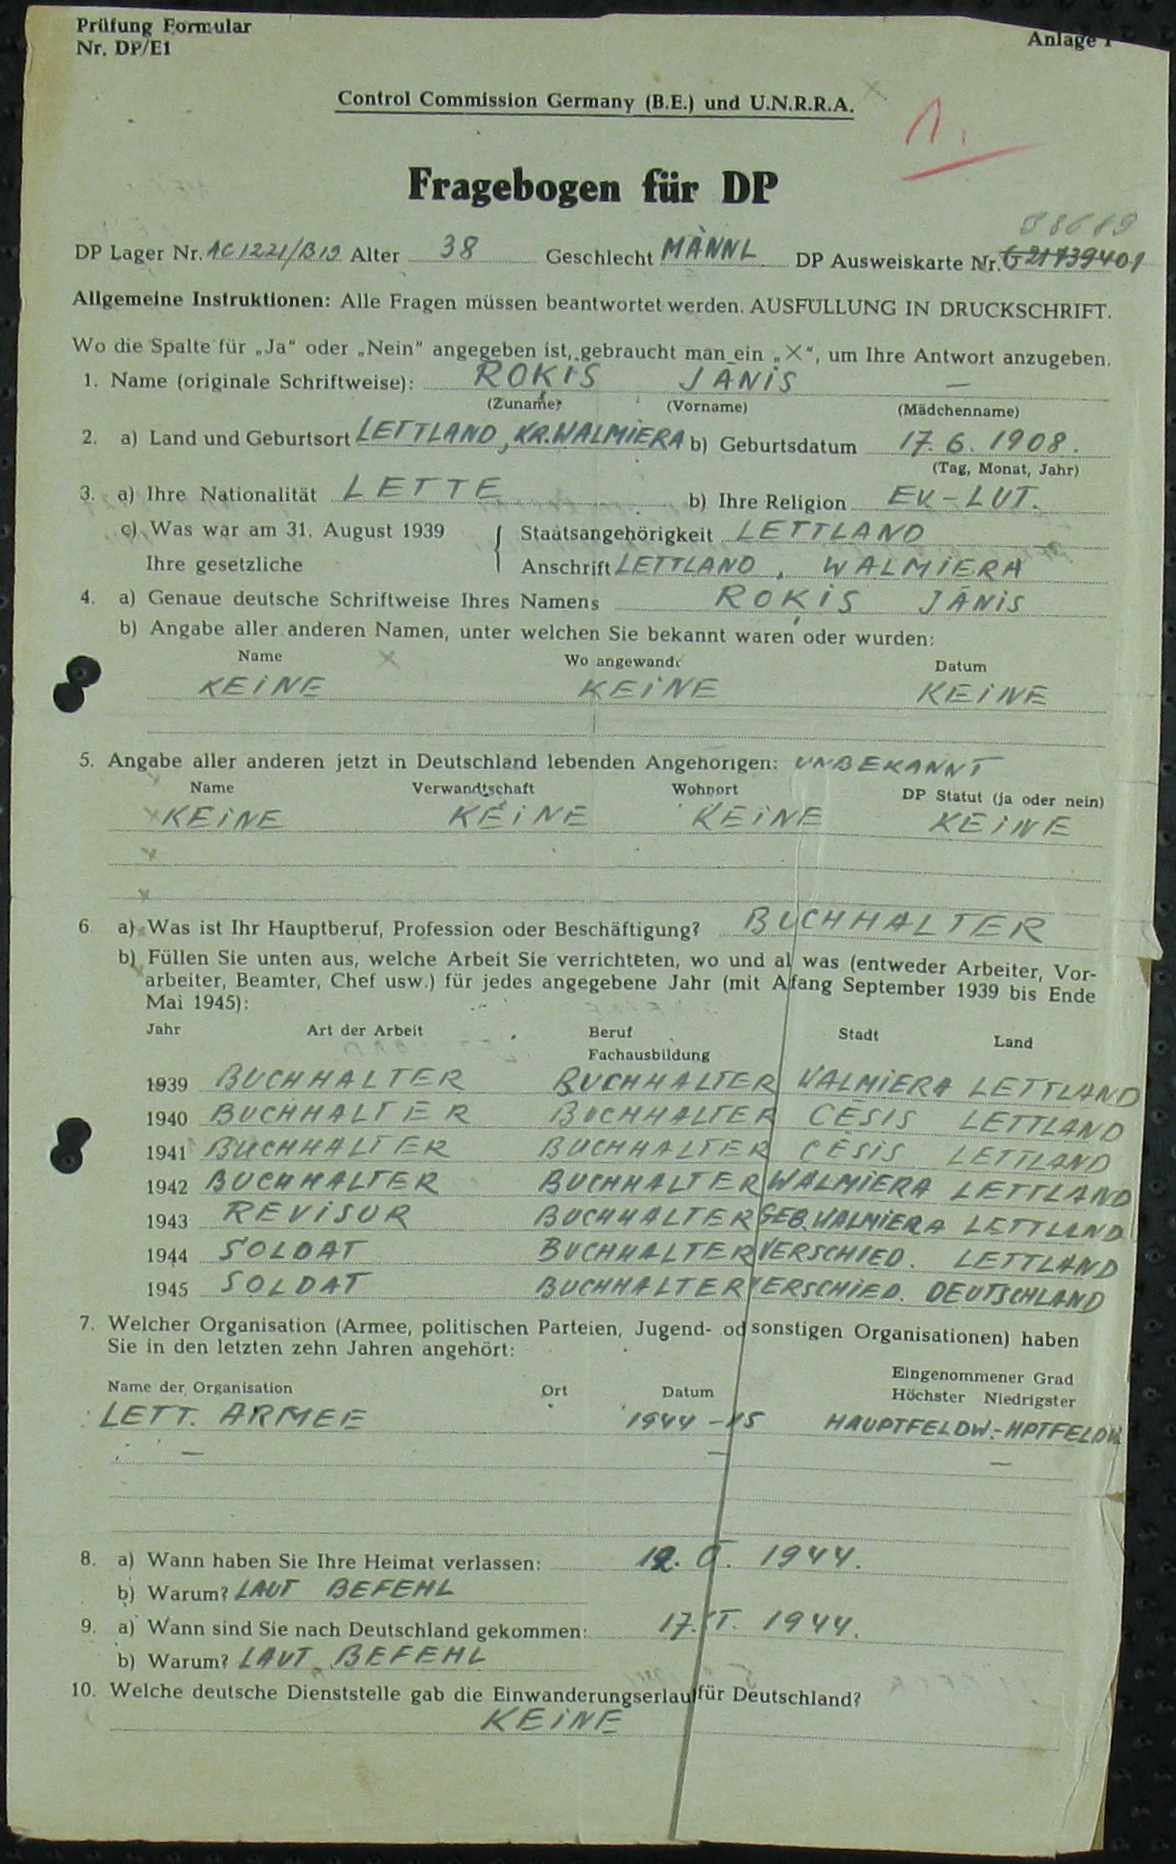 Prüfung Formular
Nr. DP/E1
Anlage 1
Control Commission Germany (B.E.) und U.N.R.R.A.
1.
Fragebogen für DP
38689
DP Lager Nr. AC1221/B19 Alter 38 Geschlecht MÄNNL DP Ausweiskarte Nr. G21739401
Allgemeine Instruktionen: Alle Fragen müssen beantwortet werden. AUSFÜLLUNG IN DRUCKSCHRIFT.
Wo die Spalte für „Ja" oder „Nein" angegeben ist, gebraucht man ein „X", um Ihre Antwort anzugeben.
1. Name (originale Schriftweise): ROĶIS JĀNIS —
(Zuname) (Vorname) (Mädchenname)
2. a) Land und Geburtsort LETTLAND, KR.WALMIERA b) Geburtsdatum 17. 6. 1908.
(Tag, Monat, Jahr)
3. a) Ihre Nationalität LETTE b) Ihre Religion EV-LUT.
c) Was war am 31. August 1939 Staatsangehörigkeit LETTLAND
Ihre gesetzliche Anschrift LETTLAND, WALMIERA
4. a) Genaue deutsche Schriftweise Ihres Namens ROĶIS JĀNIS
b) Angabe aller anderen Namen, unter welchen Sie bekannt waren oder wurden:
Name Wo angewandt Datum
KEINE KEINE KEINE
5. Angabe aller anderen jetzt in Deutschland lebenden Angehörigen: UNBEKANNT
Name Verwandtschaft Wohnort DP Statut (ja oder nein)
KEINE KEINE KEINE KEINE
6 a) Was ist Ihr Hauptberuf, Profession oder Beschäftigung? BUCHHALTER
b) Füllen Sie unten aus, welche Arbeit Sie verrichteten, wo und al was (entweder Arbeiter, Vor-
arbeiter, Beamter, Chef usw.) für jedes angegebene Jahr (mit Afang September 1939 bis Ende
Mai 1945):
Jahr Art der Arbeit Beruf Stadt Land
Fachausbildung
1939 BUCHHALTER BUCHHALTER WALMIERA LETTLAND
1940 BUCHHALTER BUCHHALTER CĒSIS LETTLAND
1941 BUCHHALTER BUCHHALTER CĒSIS LETTLAND
1942 BUCHHALTER BUCHHALTER WALMIERA LETTLAND
1943 REVISOR BUCHHALTER GEB.WALMIERA LETTLAND
1944 SOLDAT BUCHHALTER VERSCHIED. LETTLAND
1945 SOLDAT BUCHHALTER VERSCHIED. DEUTSCHLAND
7. Welcher Organisation (Armee, politischen Parteien, Jugend- od sonstigen Organisationen) haben
Sie in den letzten zehn Jahren angehört:
Eingenommener Grad
Name der Organisation Ort Datum Höchster Niedrigster
LETT. ARMEE 1944 - 45 HAUPTFELDW.- HPTFELDW.
— — —
8. a) Wann haben Sie Ihre Heimat verlassen: 1944.
b) Warum? LAUT BEFEHL
9. a) Wann sind Sie nach Deutschland gekommen: 17. 1944.
b) Warum? LAUT BEFEHL
10. Welche deutsche Dienststelle gab die Einwanderungserlau für Deutschland?
KEINE